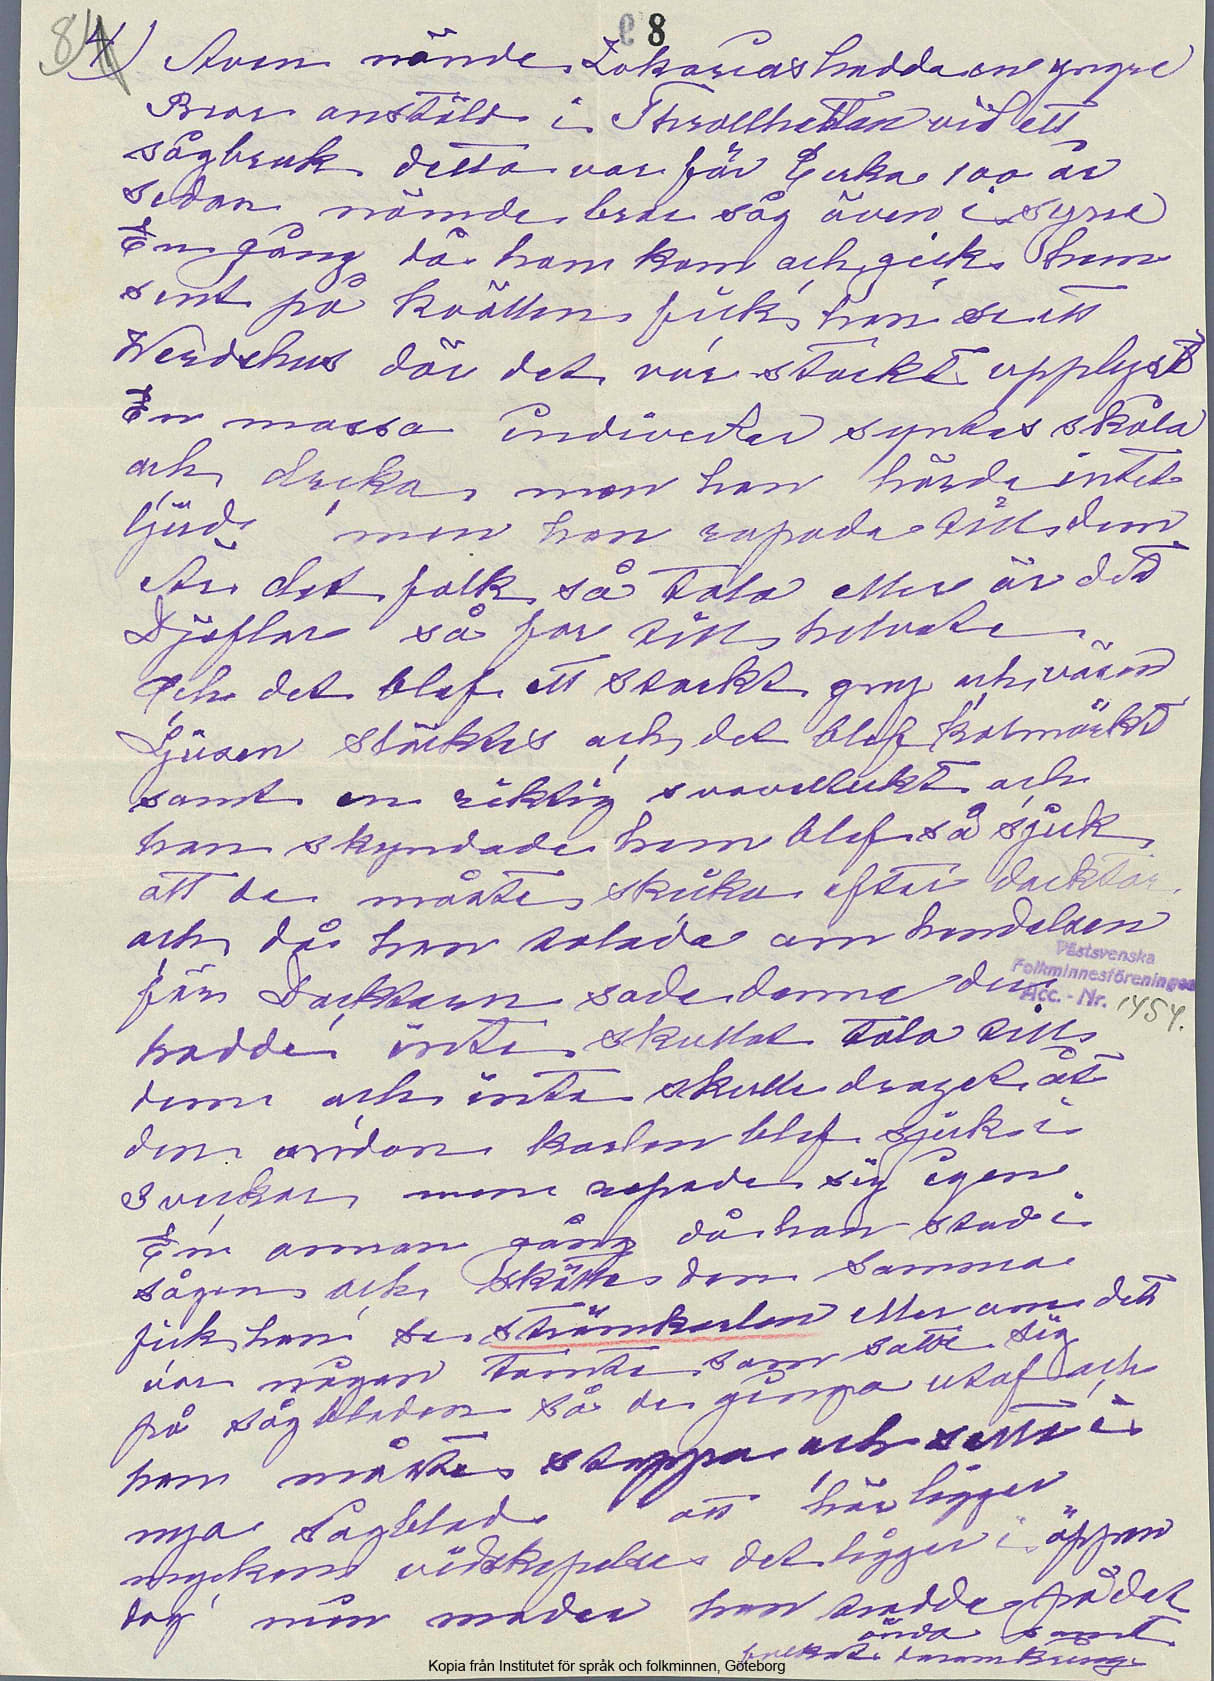 8
84
4) Även nämde Zakarias hadde en yngre
Bror anstäld i Throllhettan vid ett
sågbruk detta var för Cirka 100 år
sedan nämde bror såg även i syne
En gång då han kom och gick hem
sent på kvällen fick han se ett
Werdshus där det var starkt upplyst
En massa individer syntes skåla
och dricka men han hörde intet
ljud men han ropade till dem
Är det folk så tala eller är det
Djeflar så far till helvete
Och det blef ett starkt gny och väsen
Ljusen släktes och det blef kolmörkt
samt en riktig svavellukt och
han skyndade hem blef så sjuk
att de måste skicka efter docktor
och då han talade om hendelsen
för Docktorn sade denne du
hadde inte skullat tala till
dem och inte skulle draget åt
den vridon karlen blef sjuk i
3 veckor men repade sig igen
En annan gång då han stod i
sågen och skötte den samma
fick han se strömkarlen eller om det
var någon tomte som satte sig
på sågbladen så de gingo utaf och
han måste stoppa och sette i
nya Sågblad att här ligger
mycken vidskepelse det ligger i öppen
dag min moder hon trodde på det
ända samt
folket daromkring
Västsvenska
Folkminnesföreningen
Acc. - Nr. 1454.
Kopia från Institutet för språk och folkminnen, Göteborg